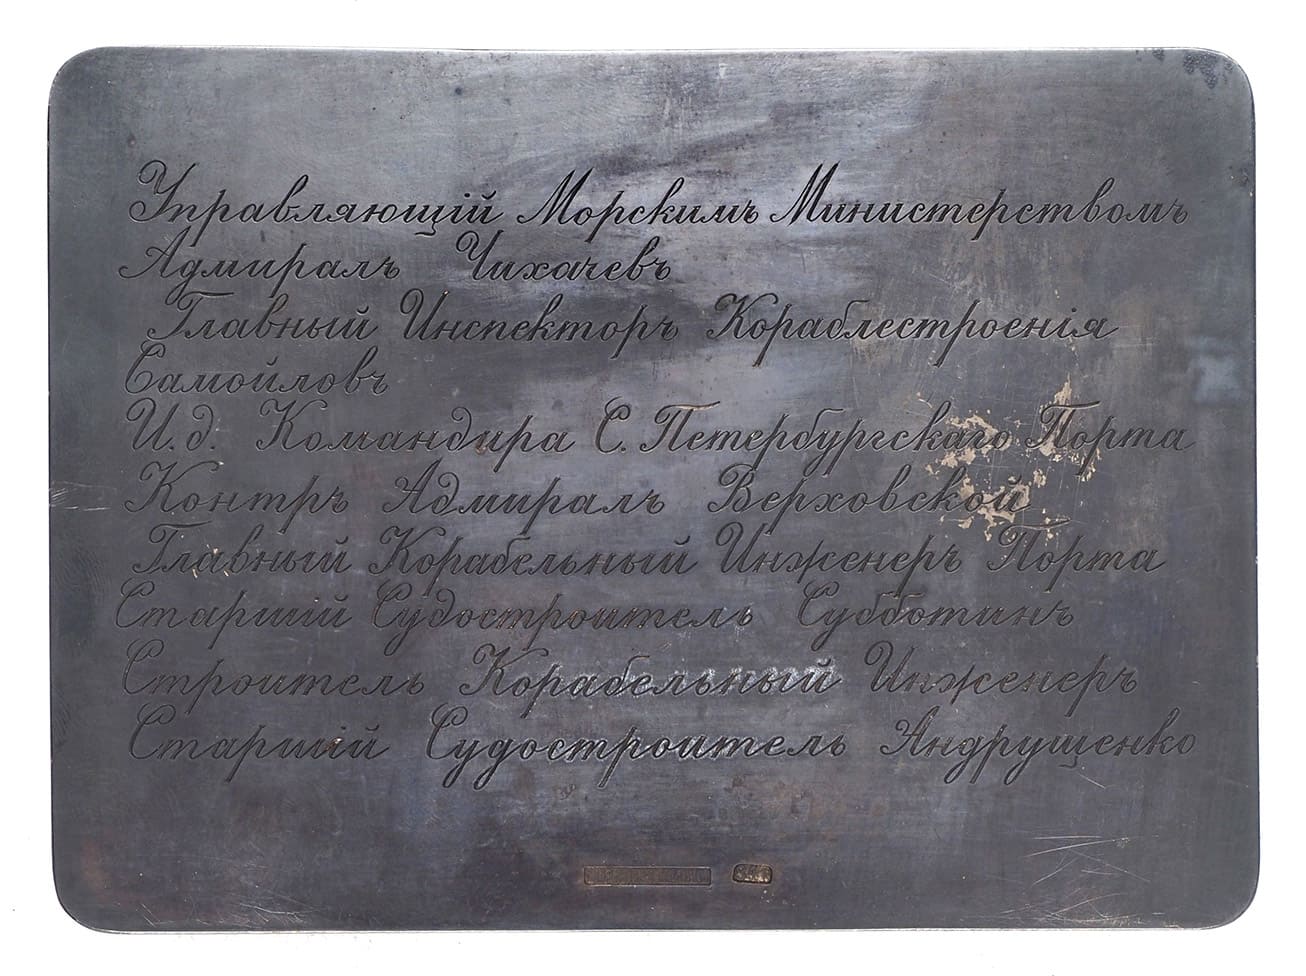 Управляющій Морскимъ Министерствомъ
Адмиралъ Чихачевъ
Главный Инспекторъ Кораблестроенія
Самойловъ
И.д. Командира С. Петербургскаго Порта
Контръ Адмиралъ Верховской
Главный Корабельный Инженеръ Порта
Старшій Судостроитель Субботинъ
Строитель Корабельный Инженеръ
Старшій Судостроитель Андрущенко